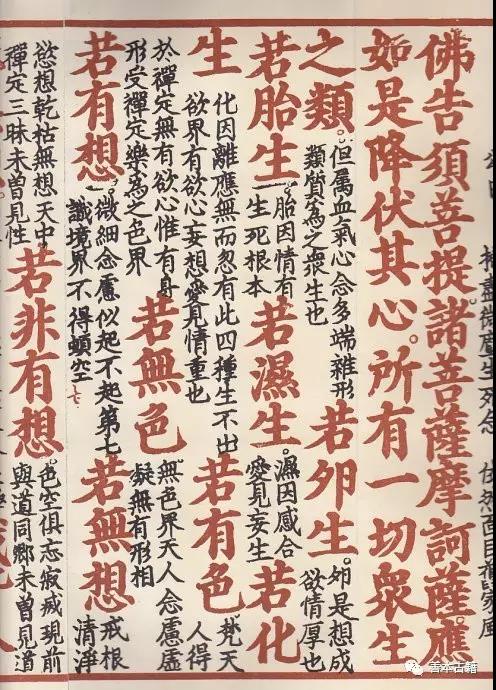 佛告須菩提諸菩薩摩訶薩應
如是降伏其心。所有一切衆生
之類。
但属血氣心念多端雜形
類質為之衆生也
若卵生。
卵是想成
欲情厚也
若胎生
胎因情有
一生死根本
若濕生。
濕因感合
愛見妄生
若化
生
化因離應無而忽有此四種生不出
欲界有欲心妄想愛見情重也
若有色
梵天
人得
於禪定無有欲心惟有身
形受禪定樂為之色界
若無色
無色界天人念慮虛
疑無有形相
若有想
微細念慮似起不起第七
識境界不得頓空
若無想
戒根
清淨
慾想乾枯無想天中
禪定三昧未曾見性
若非有想。
色空俱忘寂滅現前
與道同鄉未曾見道
善本古籍